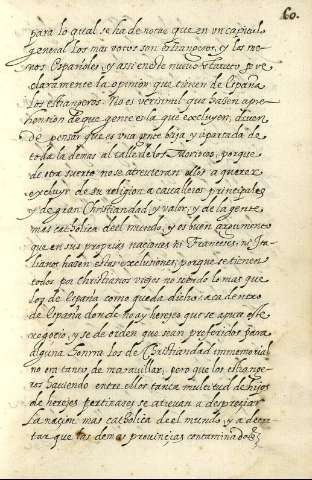 60.
para lo qual se ha de notar que en un capitulo
general los mas votos son estrangeros, y los me-
nos Españoles, y assi en este nuevo statuto se ve
claramente la opinion que tienen de España
los estrangeros. No es verisimil que hagan apre-
hension de que gente es la que excluyen, dicen
de pensar que es una gente baja y apartada de
toda la demas al talle de los Moriscos, porque
de otra suerte no se atrevieran ellos a querer
excluyr de su religion a cavalleros principales
y de gran Christiandad, y valor, y de la gente
mas catholica de el mundo, y es buen argumento
que en sus proprias naciones ni Franceses, ni Ita-
lianos hazen estas exclusiones, porque se tienen
todos por Christianos viejos no siendo lo mas que
los de España como queda dicho; aca dentro
de España donde no ay herejes que se apure este
negocio, y se de orden que sean preferidos para
alguna honrra los de Christiandad immemorial
no en tanto de maravillar, pero que los estrange-
ros haviendo entre ellos tanta multitud de hijos
de herejes pertinazes se atrevan a despreciar
la nacion mas catholica de el mundo, y a decre-
tar que las demas provincias contaminadas